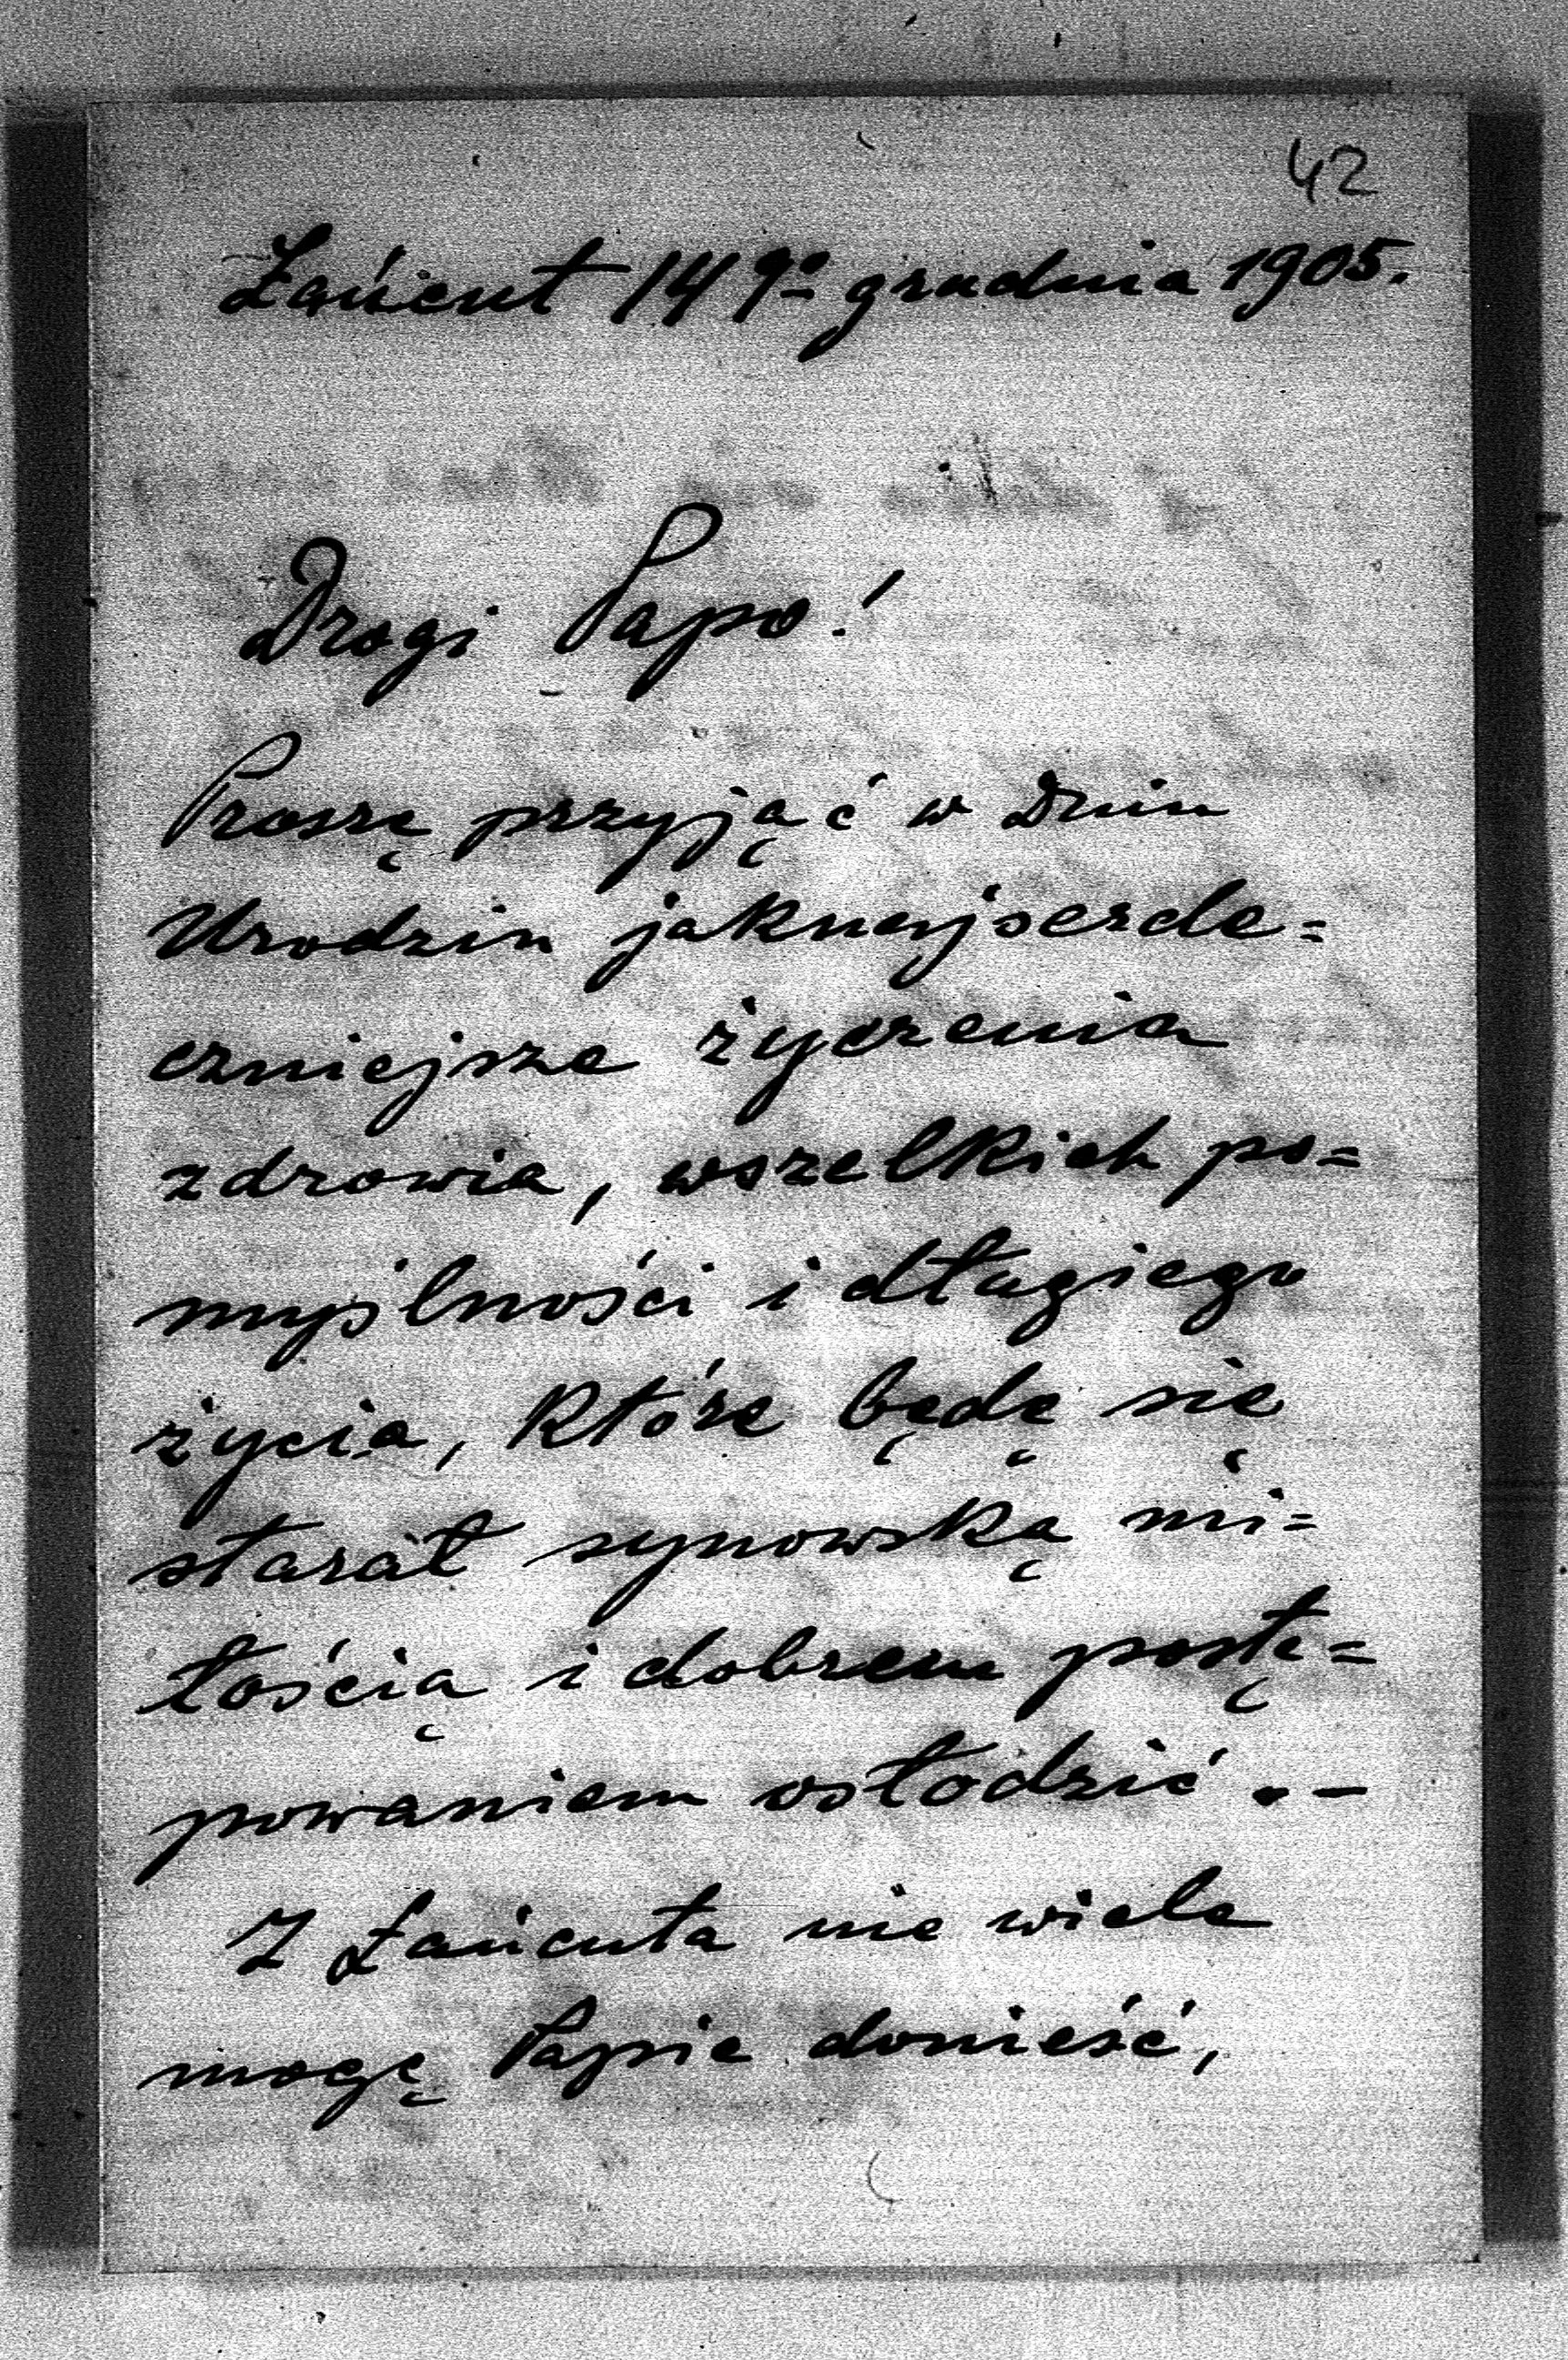 42
Łańcut 14 go grudnia 1905.
Drogi Papo!
Proszę przyjąć w dniu
Urodzin jaknajserde=
czniejsze życzenia
zdrowia, wszelkich po=
myślności i długiego
życia, które będę się
starał synowską mi=
łością i dobrem postę=
powaniem osłodzić.–
Z Łańcuta nie wiele
mogę Papie donieść,